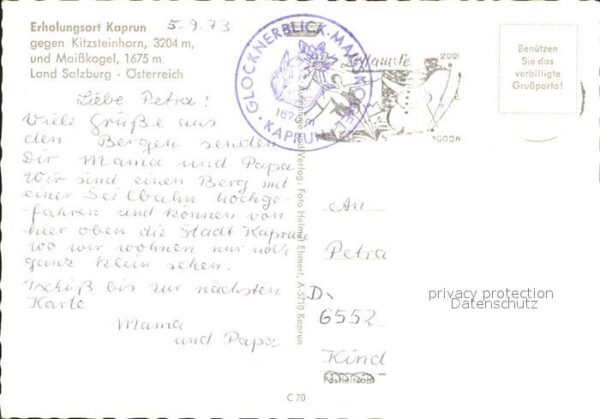 Erholungsort Kaprun
gegen Kitzsteinhorn, 3204 m,
und Maißkogel, 1675 m
Land Salzburg - Österreich
5.9.73
GLOCKNERBLICK · MAISKOGEL · KAPRUN
1675 m
2001
1000m
Benützen
Sie das
verbilligte
Grußporto!
Liebe Petra!
Viele Grüße aus
den Bergen senden
Dir Mama und Papa
Wir sind einen Berg mit
einer Seilbahn hochge-
fahren und können von
hier oben die Stadt Kaprun
wo wir wohnen nur noch
ganz klein sehen.
Tschüß bis zur nächsten
Karte
Mama
und Papa
Verlag: Foto Helmut Ehmert, A-5710 Kaprun
An
Petra
privacy protection
Datenschutz
D-
6552
Kind
Postleitzahl
C 70